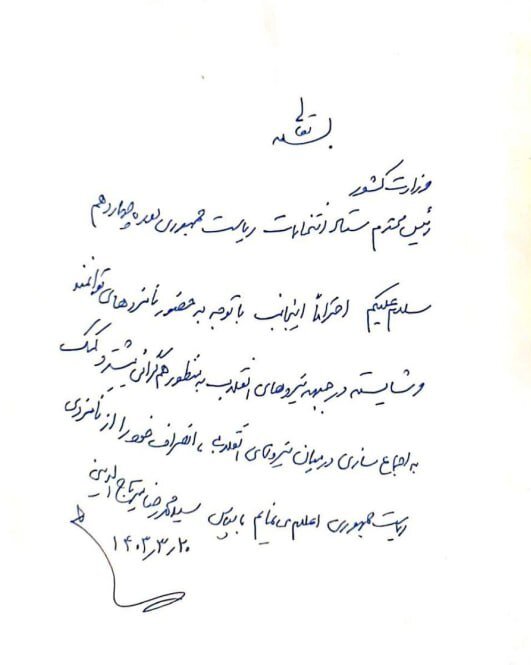 بسمه تعالی
وزارت کشور
رئیس محترم ستاد انتخابات ریاست جمهوری دوره چهاردهم
سلام علیکم احتراماً اینجانب با توجه به حضور نامزدهای توانمند
و شایسته در جبهه نیروهای انقلاب به منظور هم‌گرائی بیشتر و کمک
به اجماع سازی در میان نیروهای انقلاب، انصراف خود را از نامزدی
ریاست جمهوری اعلام می نمایم با سپاس سید محمدرضا میرتاج‌الدینی
۱۴۰۳٫۳٫۲۰